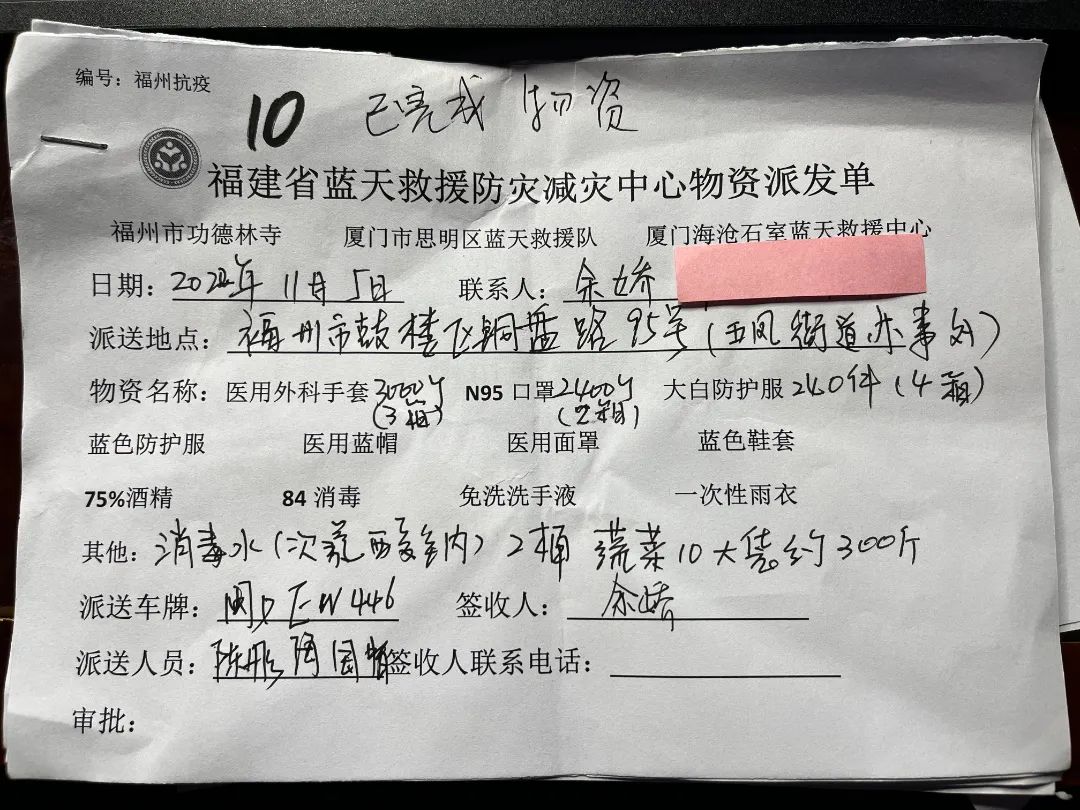 编号：福州抗疫
10 已完成 物资
福建省蓝天救援防灾减灾中心物资派发单
福州市功德林寺 厦门市思明区蓝天救援队 厦门海沧石室蓝天救援中心
日期：2022年11月5日 联系人：余娇
派送地点：福州市鼓楼区铜盘路95号（五凤街道办事处）
物资名称：医用外科手套3000个（3箱） N95 口罩2400个（2箱） 大白防护服240件（4箱）
蓝色防护服 医用蓝帽 医用面罩 蓝色鞋套
75%酒精 84 消毒 免洗洗手液 一次性雨衣
其他：消毒水（次氯酸室内）2桶 蔬菜10大袋约300斤
派送车牌：闽D 446 签收人：余娇
派送人员：陈彬 签收人联系电话：
审批：